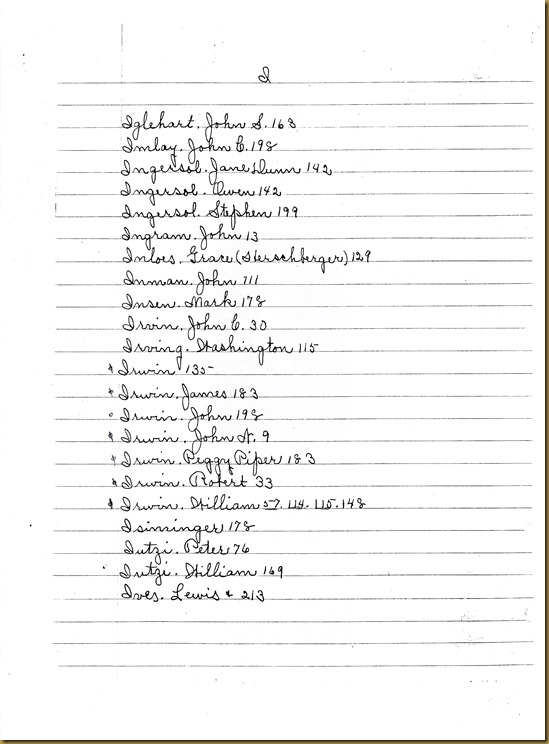 I
Iglehart, John S. 163
Imlay, John C. 198
Ingersol, Jane Dunn 142
Ingersol, Owen 142
Ingersol, Stephen 199
Ingram, John 13
Inloes, Grace (Herschberger) 129
Inman, John 711
Insen, Mark 178
Irvin, John C. 30
Irving, Washington 115
* Irwin 135
* Irwin, James 183
° Irwin, John 198
* Irwin, John W. 9
* Irwin, Peggy Piper 183
* Irwin, Robert 33
* Irwin, William 57, 114, 115, 148
Isiminger 178
Iutzi, Peter 76
Iutzi, William 169
Ives, Lewis * 213